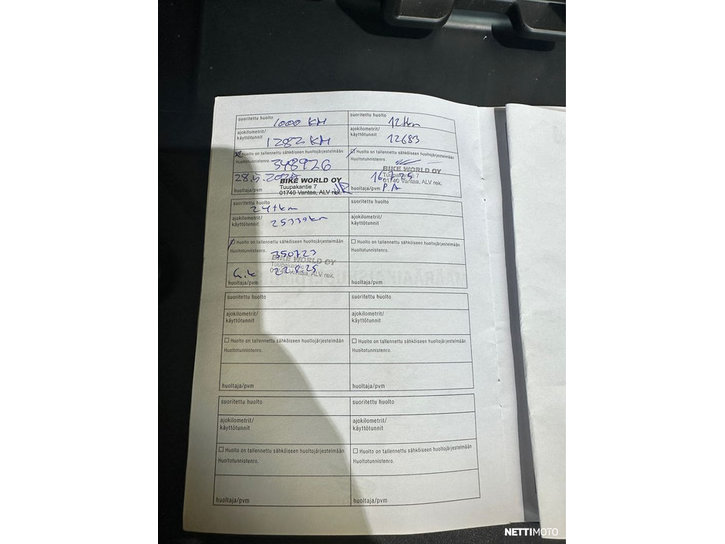 suoritettu huolto
1000 KM
ajokilometrit/
käyttötunnit
1282 KM
Huolto on tallennettu sähköiseen huoltojärjestelmään
Huoltotunnistenro.
348926
BIKE WORLD OY
Tuupakantie 7
01740 Vantaa, ALV rek.
huoltaja/pvm
suoritettu huolto
12tkm
ajokilometrit/
käyttötunnit
12683
Huolto on tallennettu sähköiseen huoltojärjestelmään
Huoltotunnistenro.
BIKE WORLD OY
Tuupakantie 7
01740 Vantaa, ALV rek.
huoltaja/pvm
P.A
suoritettu huolto
24tkm
ajokilometrit/
käyttötunnit
25339km
Huolto on tallennettu sähköiseen huoltojärjestelmään
Huoltotunnistenro.
350723
BIKE WORLD OY
huoltaja/pvm
22.8.25
suoritettu huolto
ajokilometrit/
käyttötunnit
Huolto on tallennettu sähköiseen huoltojärjestelmään
Huoltotunnistenro.
huoltaja/pvm
suoritettu huolto
ajokilometrit/
käyttötunnit
Huolto on tallennettu sähköiseen huoltojärjestelmään
Huoltotunnistenro.
huoltaja/pvm
suoritettu huolto
ajokilometrit/
käyttötunnit
Huolto on tallennettu sähköiseen huoltojärjestelmään
Huoltotunnistenro.
huoltaja/pvm
suoritettu huolto
ajokilometrit/
käyttötunnit
Huolto on tallennettu sähköiseen huoltojärjestelmään
Huoltotunnistenro.
huoltaja/pvm
suoritettu huolto
ajokilometrit/
käyttötunnit
Huolto on tallennettu sähköiseen huoltojärjestelmään
Huoltotunnistenro.
huoltaja/pvm
NETTIMOTO